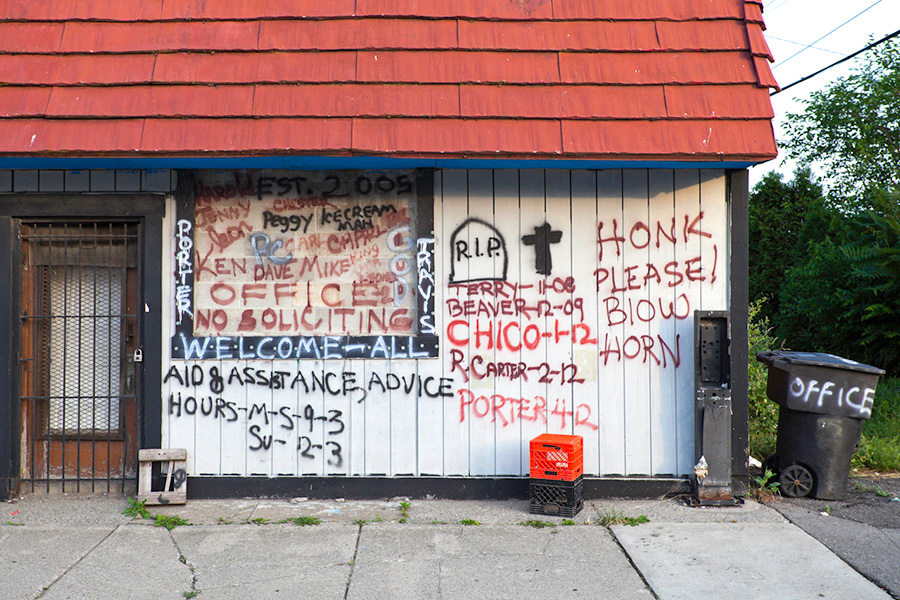 EST. 2005
JENNY
CHESTER
Peggy ICECREAM
MAN
KEN DAVE MIKE
King
OFFICE
NO SOLICITING
PORTER
TRAVIS
WELCOME-ALL
AID & ASSISTANCE, ADVICE
HOURS-M-S-9-3
SU-12-3
R.I.P.
TERRY-11-08
BEAVER-12-09
CHICO-1-12
R. CARTER-2-12
PORTER 4-12
HONK
PLEASE!
BLOW
HORN
OFFICE